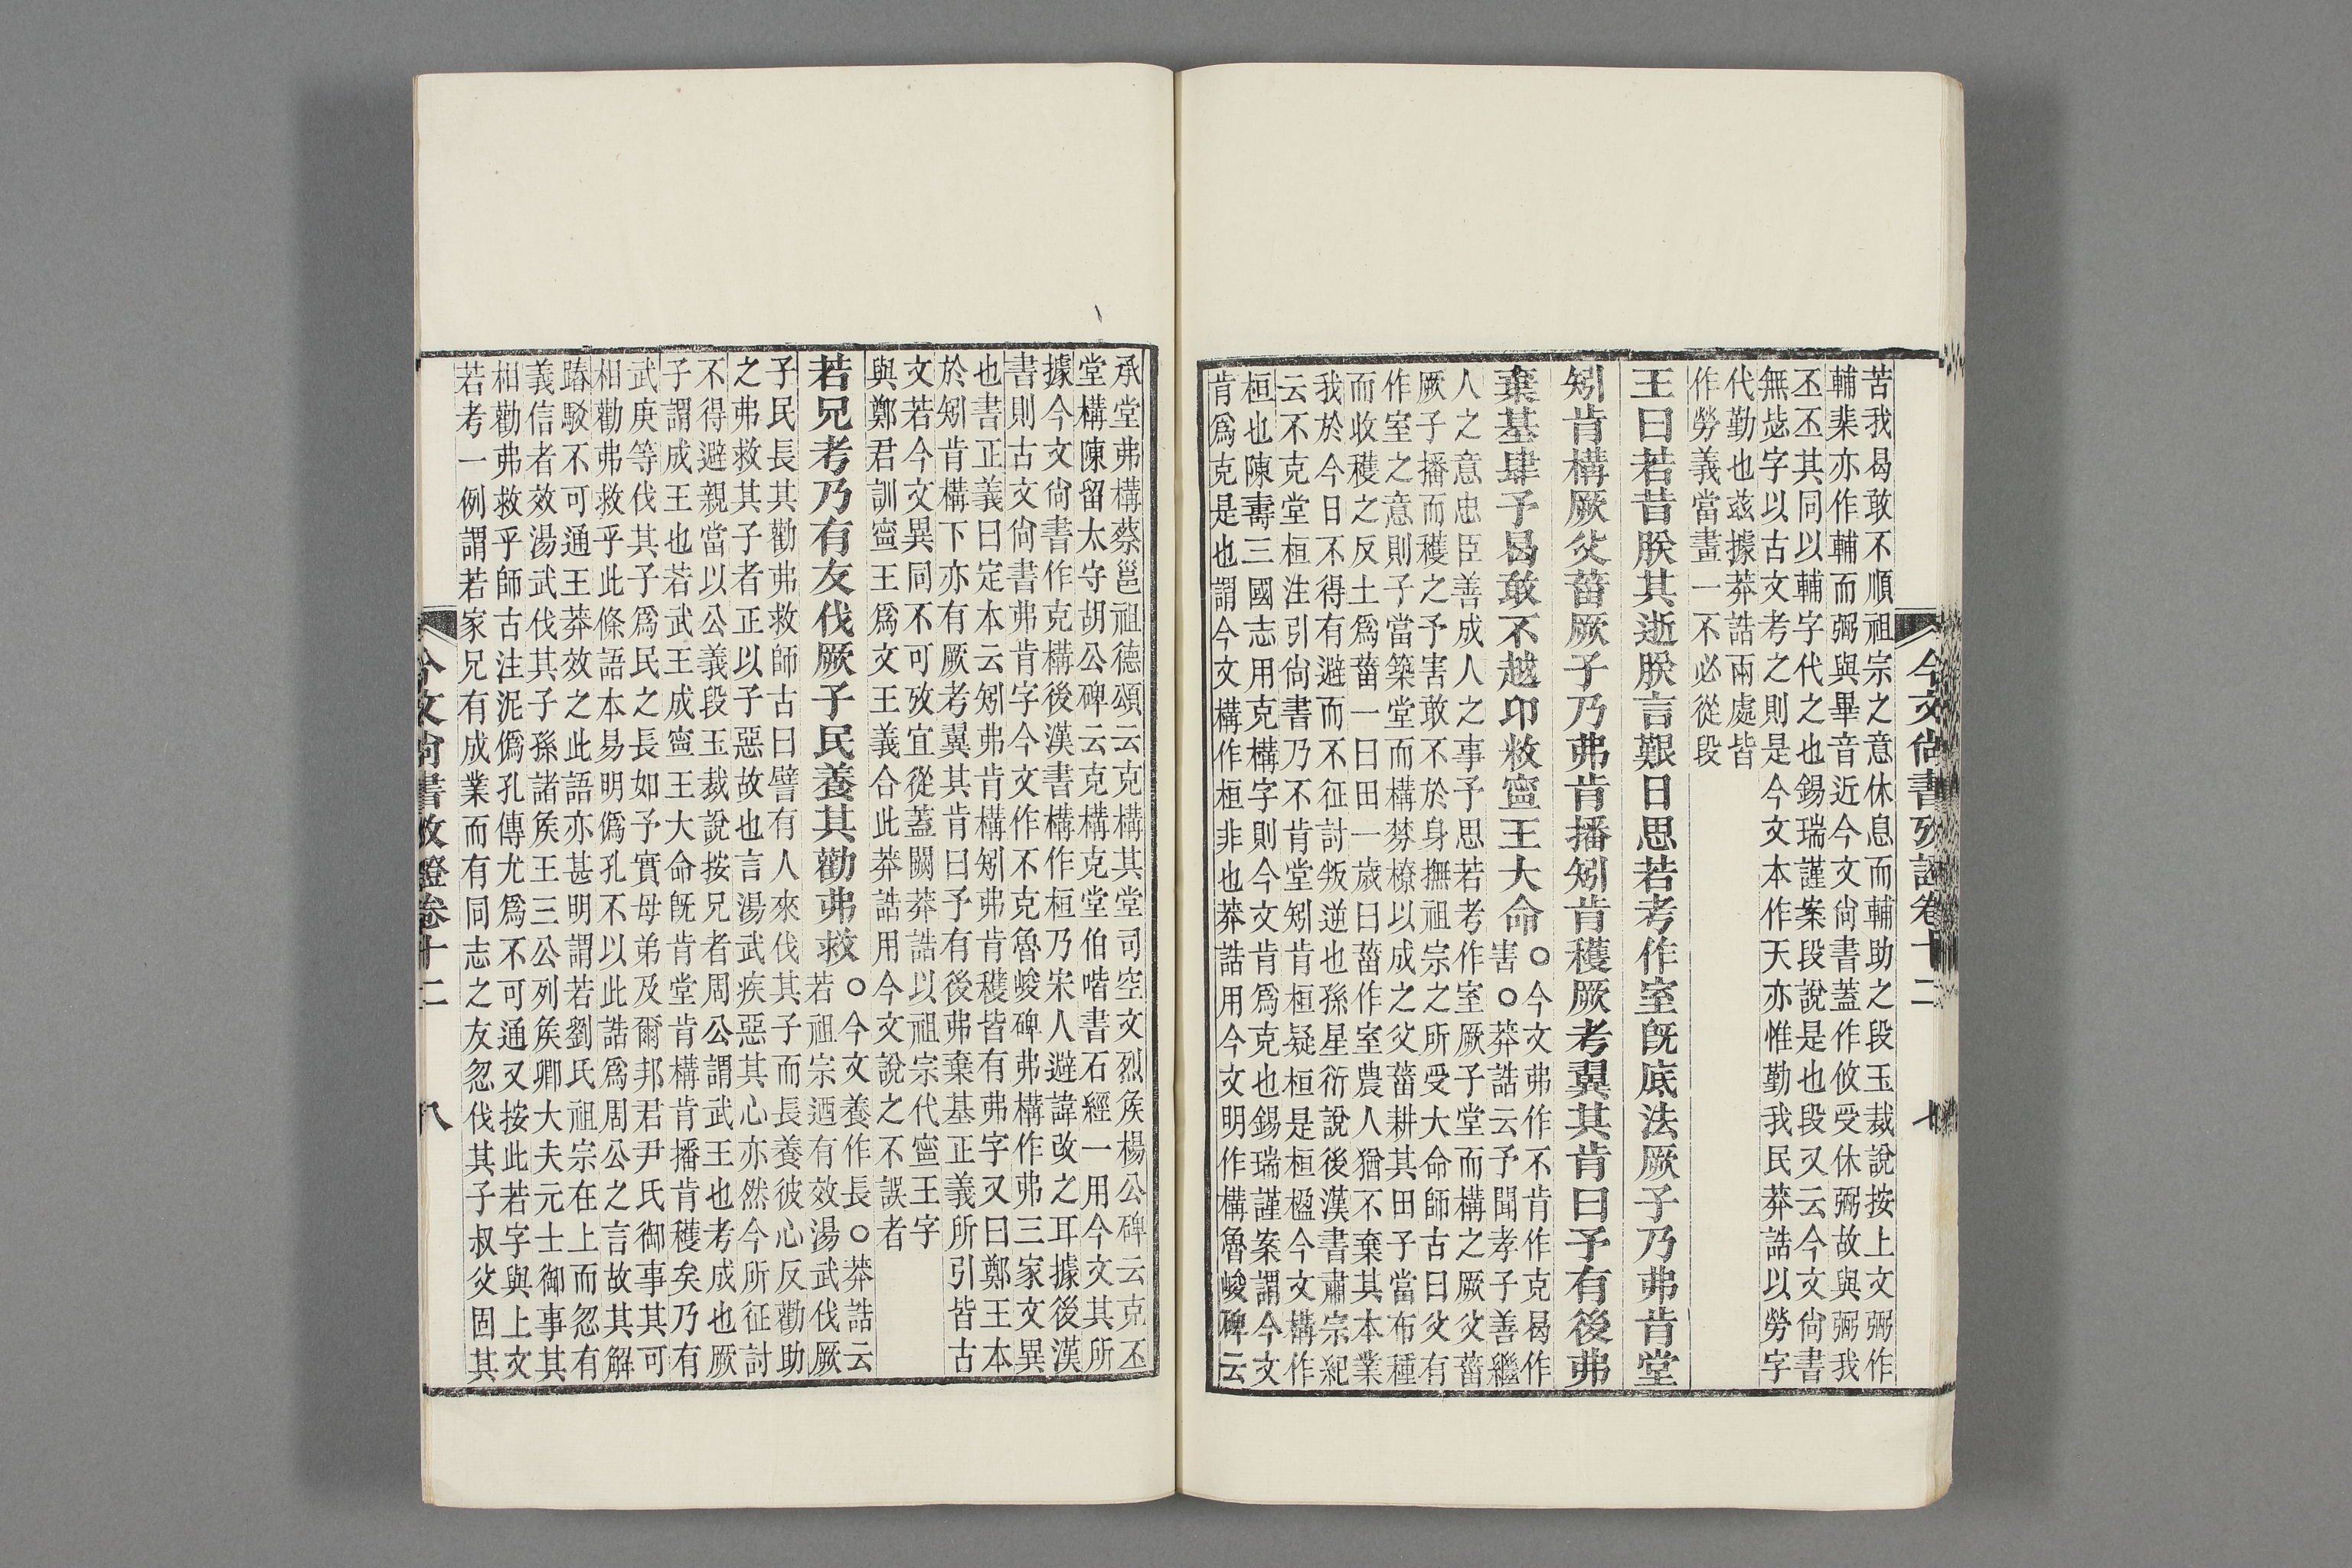 苦我曷敢不順祖宗之意休息而輔助之段玉裁說按上文弼作
輔棐亦作輔而弼與畢音近今文尙書蓋作攸受休弼故與弼我
丕丕其同以輔字代之也錫瑞謹案段說是也段又云今文尙書
無毖字以古文考之則是今文本作天亦惟勤我民莽誥以勞字
代勤也茲據莽誥兩處皆
作勞義當畫一不必從段
王曰若昔朕其逝朕言艱日思若考作室旣底法厥子乃弗肯堂
矧肯構厥父菑厥子乃弗肯播矧肯穫厥考翼其肯曰予有後弗
棄基肆予曷敢不越卬敉寍王大命
○今文弗作不肯作克曷作
害○莽誥云予聞孝子善繼
人之意忠臣善成人之事予思若考作室厥子堂而構之厥父菑
厥子播而穫之予害敢不於身撫祖宗之所受大命師古曰父有
作室之意則子當築堂而構棼橑以成之父菑耕其田子當布種
而收穫之反土爲菑一曰田一歲曰菑作室農人猶不棄其本業
我於今日不得有避而不征討叛逆也孫星衍說後漢書肅宗紀
云不克堂桓注引尙書乃不肯堂矧肯桓疑桓是桓楹今文構作
桓也陳壽三國志用克構字則今文肯爲克也錫瑞謹案謂今文
肯爲克是也謂今文構作桓非也莽誥用今文明作構魯峻碑云
今文尙書攷證卷十二
七
承堂弗構蔡邕祖德頌云克構其堂司空文烈矦楊公碑云克丕
堂構陳留太守胡公碑云克構克堂伯喈書石經一用今文其所
據今文尙書作克構後漢書構作桓乃宋人避諱改之耳據後漢
書則古文尙書弗肯字今文作不克魯峻碑弗構作弗三家文異
也書正義曰定本云矧弗肯構矧弗肯穫皆有弗字又曰鄭王本
於矧肯構下亦有厥考翼其肯曰予有後弗棄基正義所引皆古
文若今文異同不可攷宜從蓋闕莽誥以祖宗代寍王字
與鄭君訓寍王爲文王義合此莽誥用今文說之不誤者
若兄考乃有友伐厥子民養其勸弗救
○今文養作長○莽誥云
若祖宗迺有效湯武伐厥
子民長其勸弗救師古曰譬有人來伐其子而長養彼心反勸助
之弗救其子者正以子惡故也言湯武疾惡其心亦然今所征討
不得避親當以公義段玉裁說按兄者周公謂武王也考成也厥
子謂成王也若武王成寍王大命旣肯堂肯構肯播肯穫矣乃有
武庚等伐其子爲民之長如予實母弟及爾邦君尹氏御事其可
相勸弗救乎此條語本易明僞孔不以此誥爲周公之言故其解
踳駁不可通王莽效之此語亦甚明謂若劉氏祖宗在上而忽有
義信者效湯武伐其子孫諸矦王三公列矦卿大夫元士御事其
相勸弗救乎師古注泥僞孔傳尤爲不可通又按此若字與上文
若考一例謂若家兄有成業而有同志之友忽伐其子叔父固其
今文尙書攷證卷十二
八